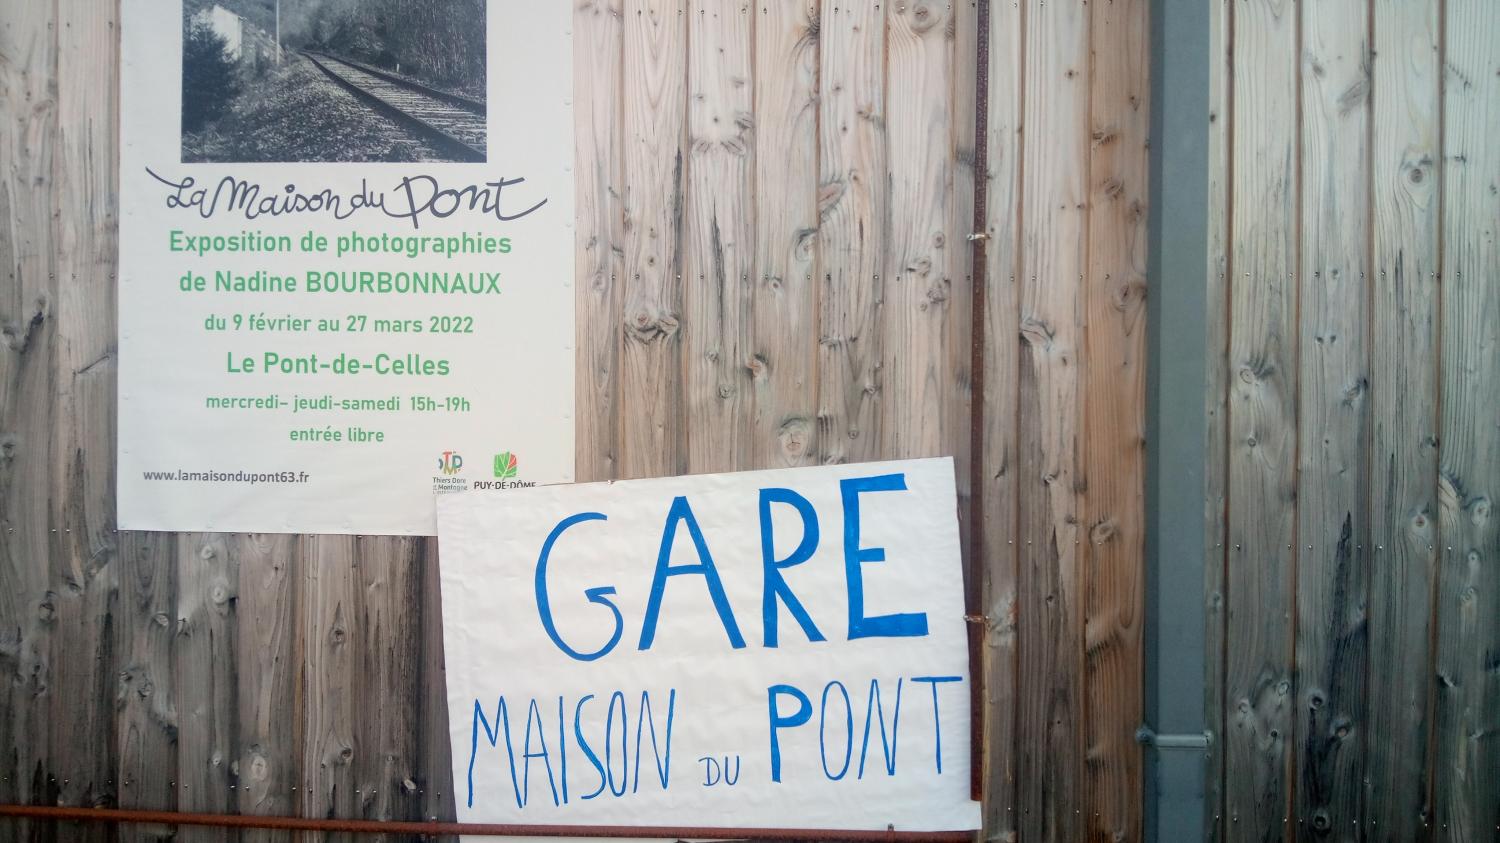 La Maison du Pont
Exposition de photographies
de Nadine BOURBONNAUX
du 9 février au 27 mars 2022
Le Pont-de-Celles
mercredi– jeudi-samedi 15h-19h
entrée libre
www.lamaisondupont63.fr
TDM
Thiers Dore
et Montagne
PUY-DE-DÔME
GARE
MAISON DU PONT